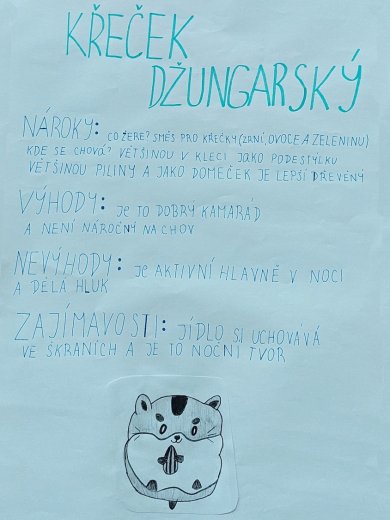 KŘEČEK
DŽUNGARSKÝ
NÁROKY: CO ŽERE? SMĚS PRO KŘEČKY (ZRNÍ, OVOCE A ZELENINU)
KDE SE CHOVÁ? VĚTŠINOU V KLECI JAKO PODESTÝLKU
VĚTŠINOU PILINY A JAKO DOMEČEK JE LEPŠÍ DŘEVĚNÝ
VÝHODY: JE TO DOBRÝ KAMARÁD
A NENÍ NÁROČNÝ NA CHOV
NEVÝHODY: JE AKTIVNÍ HLAVNĚ V NOCI
A DĚLÁ HLUK
ZAJÍMAVOSTI: JÍDLO SI UCHOVÁVÁ
VE ŠKRANÍCH A JE TO NOČNÍ TVOR